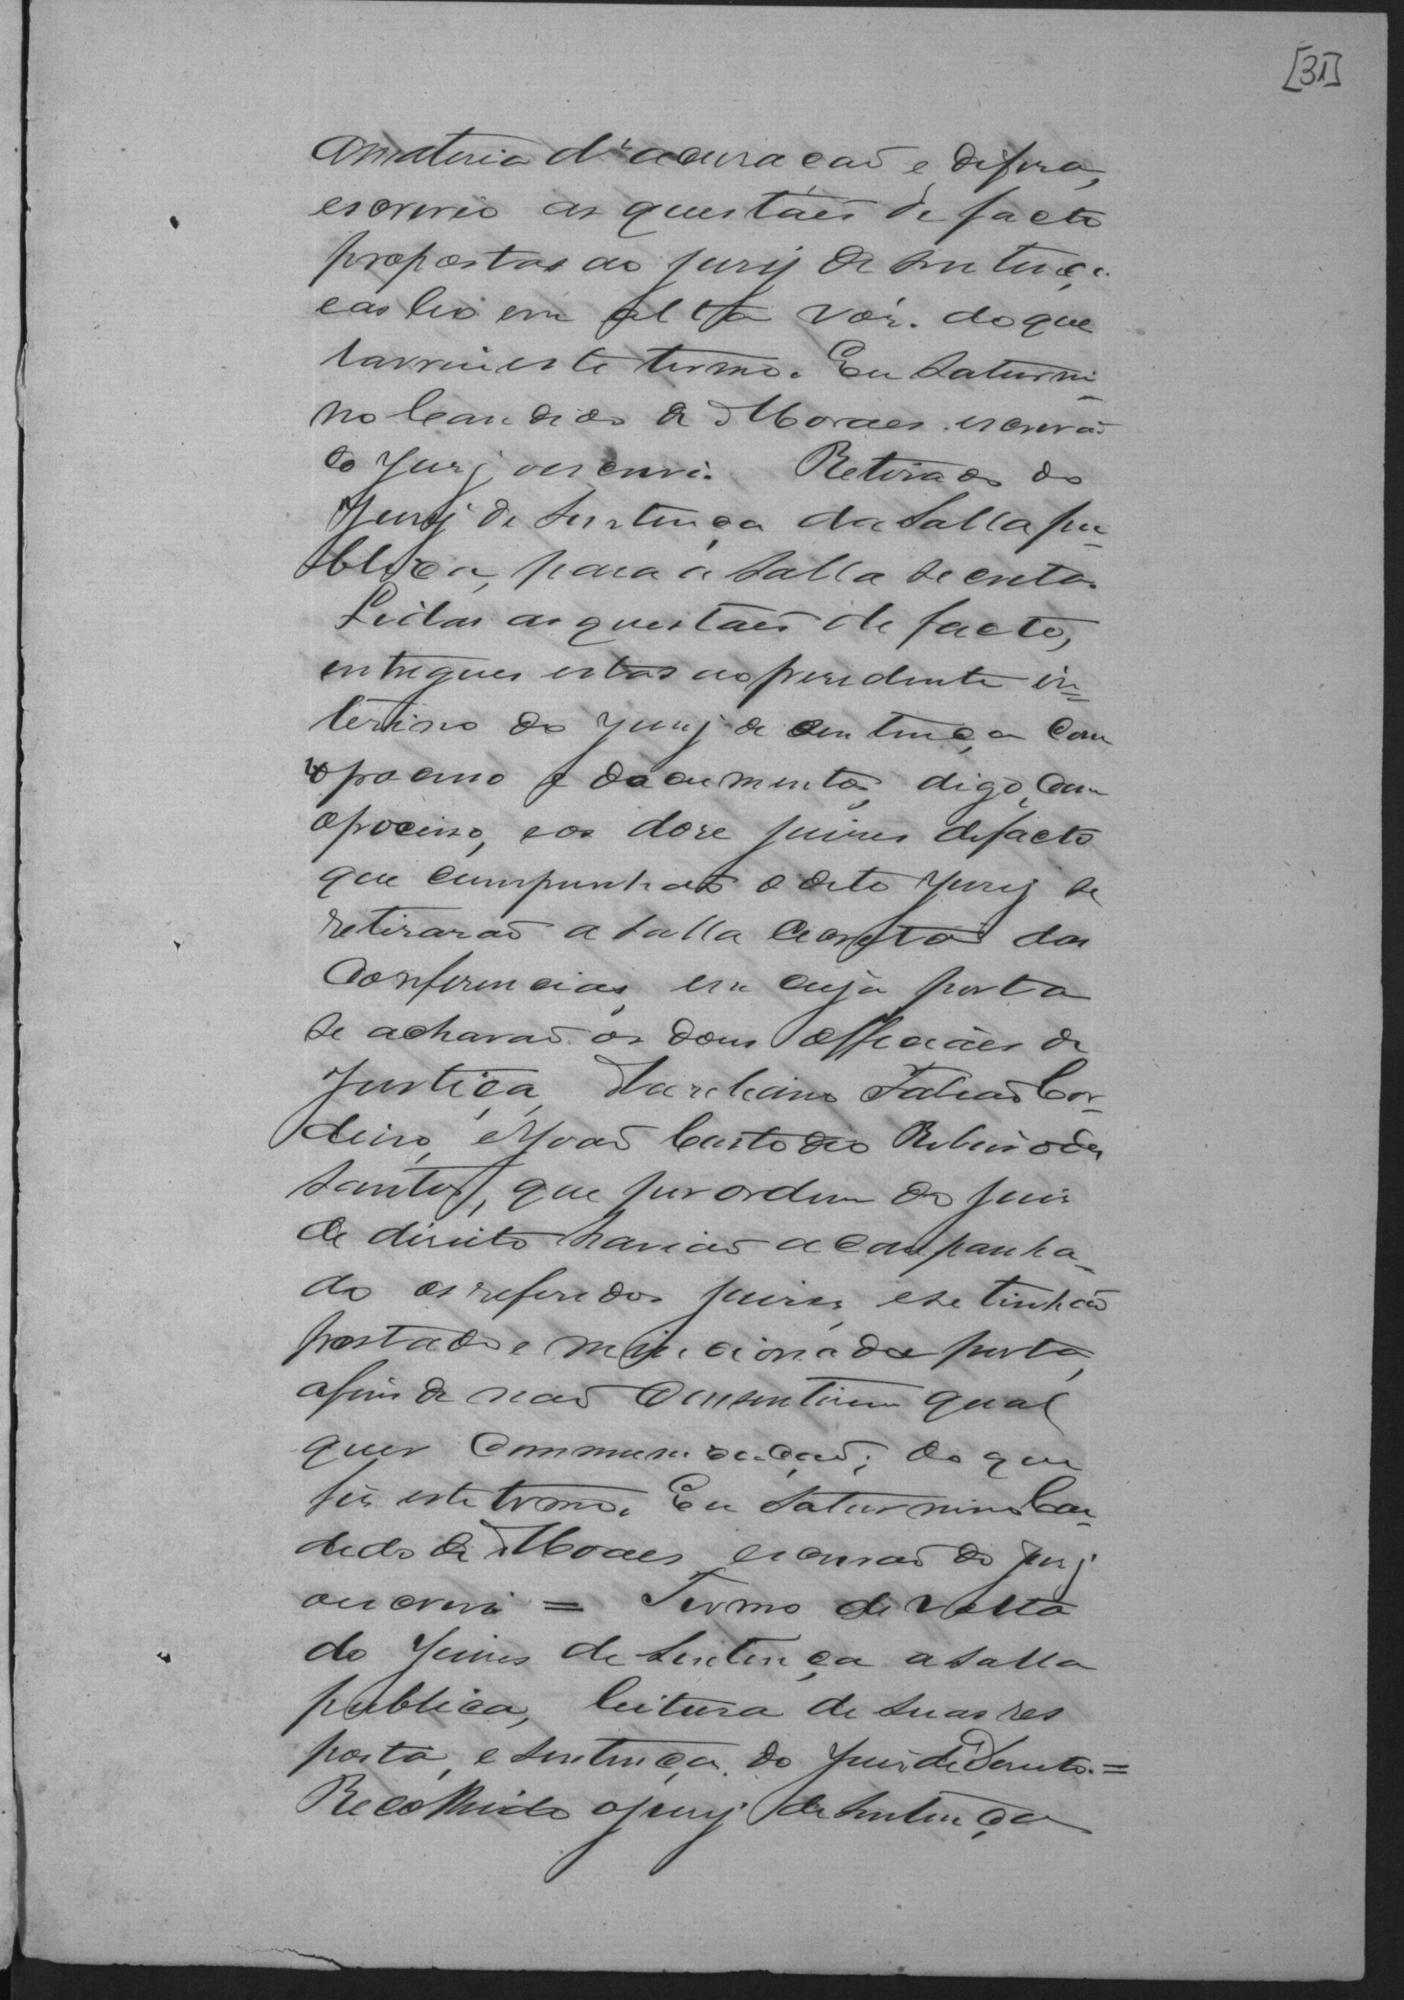 [31]
amateria d'acuracaõ e difeza,
escreveo as questões de facto
propostas ao jury de sentença
eas leo em alta voz. do que
lavrei este termo. Eu Saturni=
no Candido de Moraes escrivaõ
do jury oescrevi. Retirada do
Jury de Sentença da Salla pu=
blica, para a Salla Secreta.
Lidas as questões de facto,
entregues estas ao presidente in=
terino do jury de Sentença com
o processo e documentos, digo, com
oprocesso, eos doze juizes defacto
que cumpunhaõ o dito jury se
retiraraõ a Salla Secreta das
Conferencias, em cuja porta
se achavaõ os dous officiães de
Justiça, Falcaõ Cor=
deiro, eJoaõ Custodio Ribeiro dos
Santos, que por ordem do juiz
de direito haviaõ acompanha=
do os referidos juizes, ese tinhaõ
postado e mencionada porta,
afim de naõ consentirem qual
quer communicaçaõ; do que
fiz este termo. Eu Saturnino Can=
dido de Moraes escrivaõ do jury
oescrevi = Termo de Volta
do Juizes de Sentença a Salla
publica, leitura de suas res
posta, e Sentença. do Juiz de Dereito. =
Recolhido o jury de Sentença